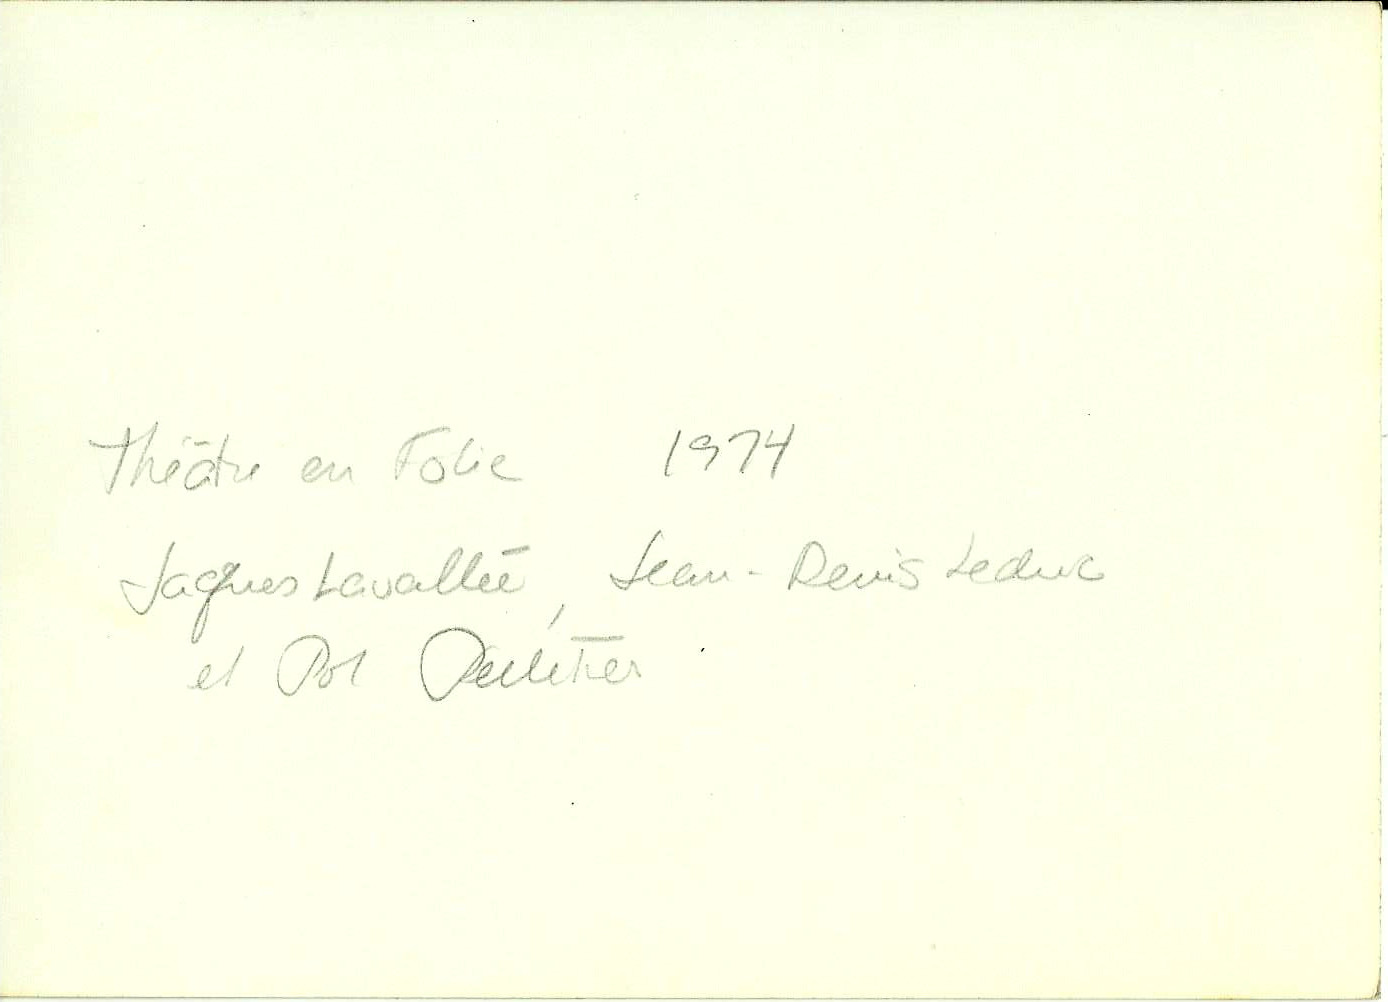 Théâtre en Folie 1974
Jacques Lavallée, Jean-Denis Leduc
et Pol Pelletier